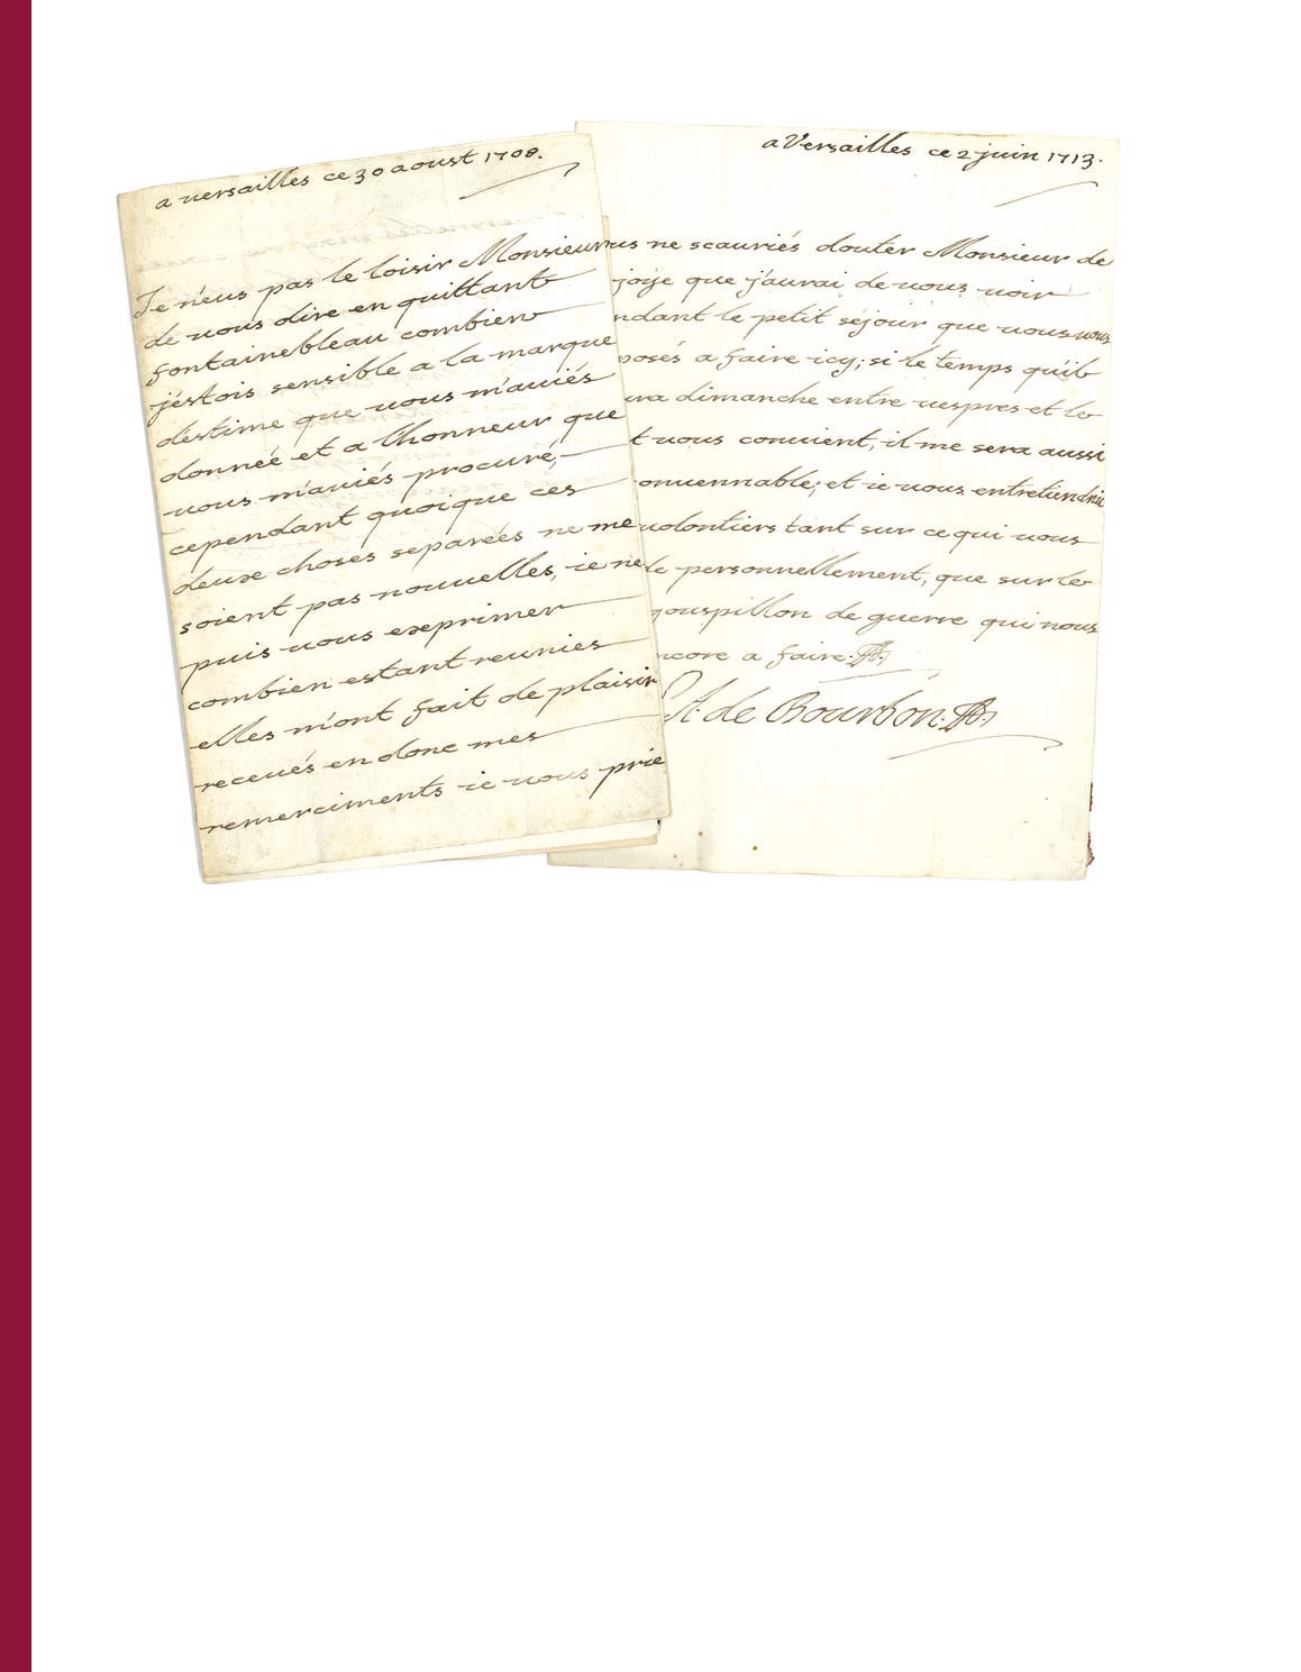 a versailles ce 30 aoust 1708.
Je n'eus pas le loisir Monsieur
de uous dire en quittant
fontainebleau combien
j'estois sensible a la marque
d'estime que uous m'auiés
donneé et a l'honneur que
uous m'auiés procuré,
cependant quoique ces
deux choses separeés ne me
soient pas nouuelles, ie ne
puis uous exprimer
combien estant reunies
elles m'ont fait de plaisir
receués en donc mes
remerciments ie uous prie
a Versailles ce 2 juin 1713.
us ne scauriés douter Monsieur de
joye que j'aurai de uous uoir
ndant le petit séjour que uous uous
posés a faire icy; si le temps qu'il
ura dimanche entre uespres et le
t uous conuient, il me sera aussi
onuennable; et ie uous entretiendrai
uolontiers tant sur ce qui uous
le personnellement, que sur le
gouspillon de guerre qui nous
ncore a faire.
L. A. de Bourbon.